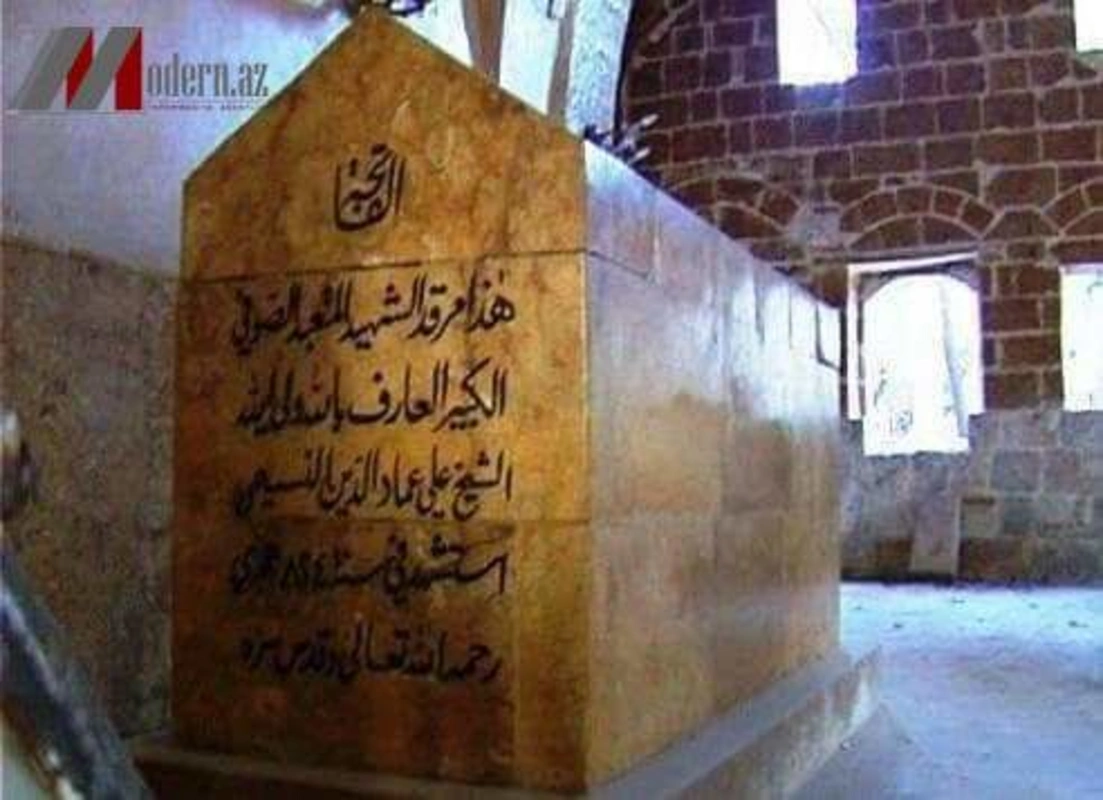 Modern.az
الفاتحة
هذا مرقد الشهيد المتعبد الصوفي
الكبير العارف بالله ولي الله
الشيخ علي عماد الدين النسيمي
استشهد في سنة ٨٢٤ هجري
رحمه الله تعالى وقدس سره